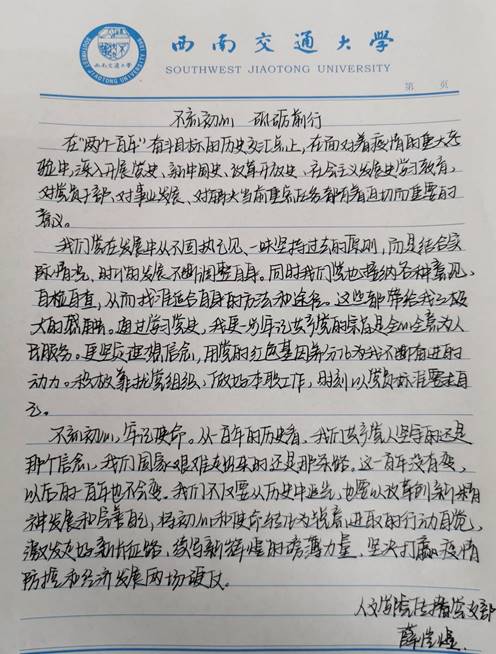 西南交通大学
SOUTHWEST JIAOTONG UNIVERSITY
第 页
不忘初心 砥砺前行
在"两个百年"奋斗目标的历史交汇点上,在面对着疫情的重大考
验中,深入开展党史、新中国史、改革开放史、社会主义发展史学习教育,
对党员干部、对事业发展、对解决当前重点任务都有着迫切而重要的
意义。
我们党在发展中从不固执己见、一味坚持过去的原则,而是结合实
际情况、时代的发展不断调整自身。同时我们党也接纳各种意见,
自检自查,从而找准适合自身的方法和途径。这些都带给我极
大的感触。通过学习党史,我更加牢记共产党的宗旨是全心全意为人
民服务。更坚定理想信念,用党的红色基因养分化为我不断奋进的
动力。积极靠拢党组织,做好本职工作,时刻以党员标准要求自
己。
不忘初心,牢记使命。从一百年的历史看,我们共产党人坚守的还是
那个信念,我们国家艰难走出来的还是那条路,这一百年没有变,
以后的一百年也不会变。我们不仅要从历史中走来,也要以改革创新精
神发展和完善自己,将初心和使命转化为锐意进取的行动自觉,
激发走好新长征路、续写新辉煌的磅礴力量,坚决打赢疫情
防控和经济发展两场硬仗。
人文学院 党支部
薛